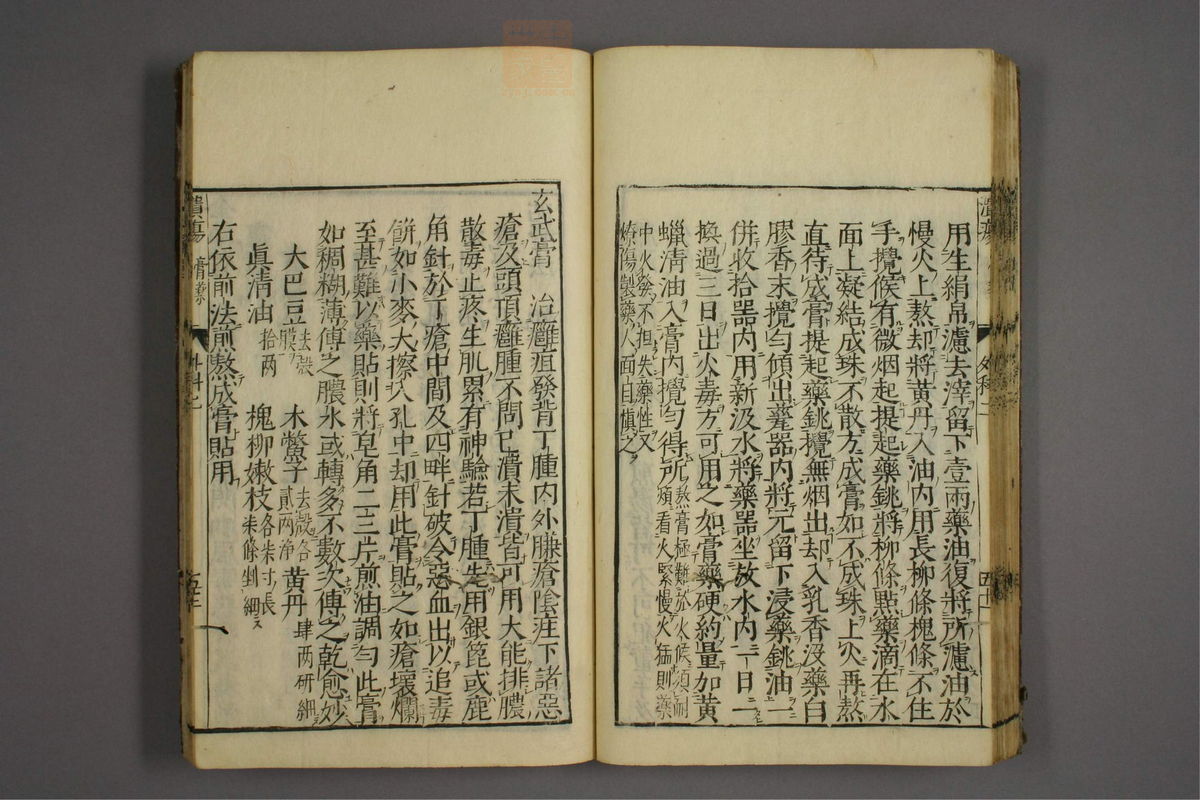 用生絹帛濾去滓留下壹兩藥油復將所濾油於
慢火上熬却將黃丹入油內用長柳條槐條不住
手攪候有微烟起提起藥銚將柳條點藥滴在水
面上凝結成珠不散方成膏如不成珠上火再熬
直待成膏提起藥銚攪無烟出却入乳香沒藥白
膠香末攪勻傾出甆器內將元留下浸藥銚油一
併收拾器內用新汲水將藥器坐放水內一日一
換過三日出火毒方可用之如膏藥硬約量加黃
蠟淸油入膏內攪勻得所熬膏極難於火候須耐
煩看火緊慢火猛則藥
中火發不担失藥性又
燎傷製藥人面目愼之
玄武膏 治癰疽發背丁腫內外臁瘡陰疰下諸惡
瘡及頭項癰腫不問已潰未潰皆可用大能排膿
散毒止疼生肌累有神驗若丁腫先用銀篦或鹿
角針於丁瘡中間及四畔針破令惡血出以追毒
餅如小麥大擦入孔中却用此膏貼之如瘡壞爛
至甚難以藥貼則將皂角二三片煎油調勻此膏
如稠糊薄傅之膿水或轉多不數次傅之乾愈妙
大巴豆去殼膜 木鱉子去殼各貳兩淨 黃丹肆兩硏細
眞淸油拾兩 槐柳嫩枝各柒寸長柒條剉細
右依前法煎熬成膏貼用
外科